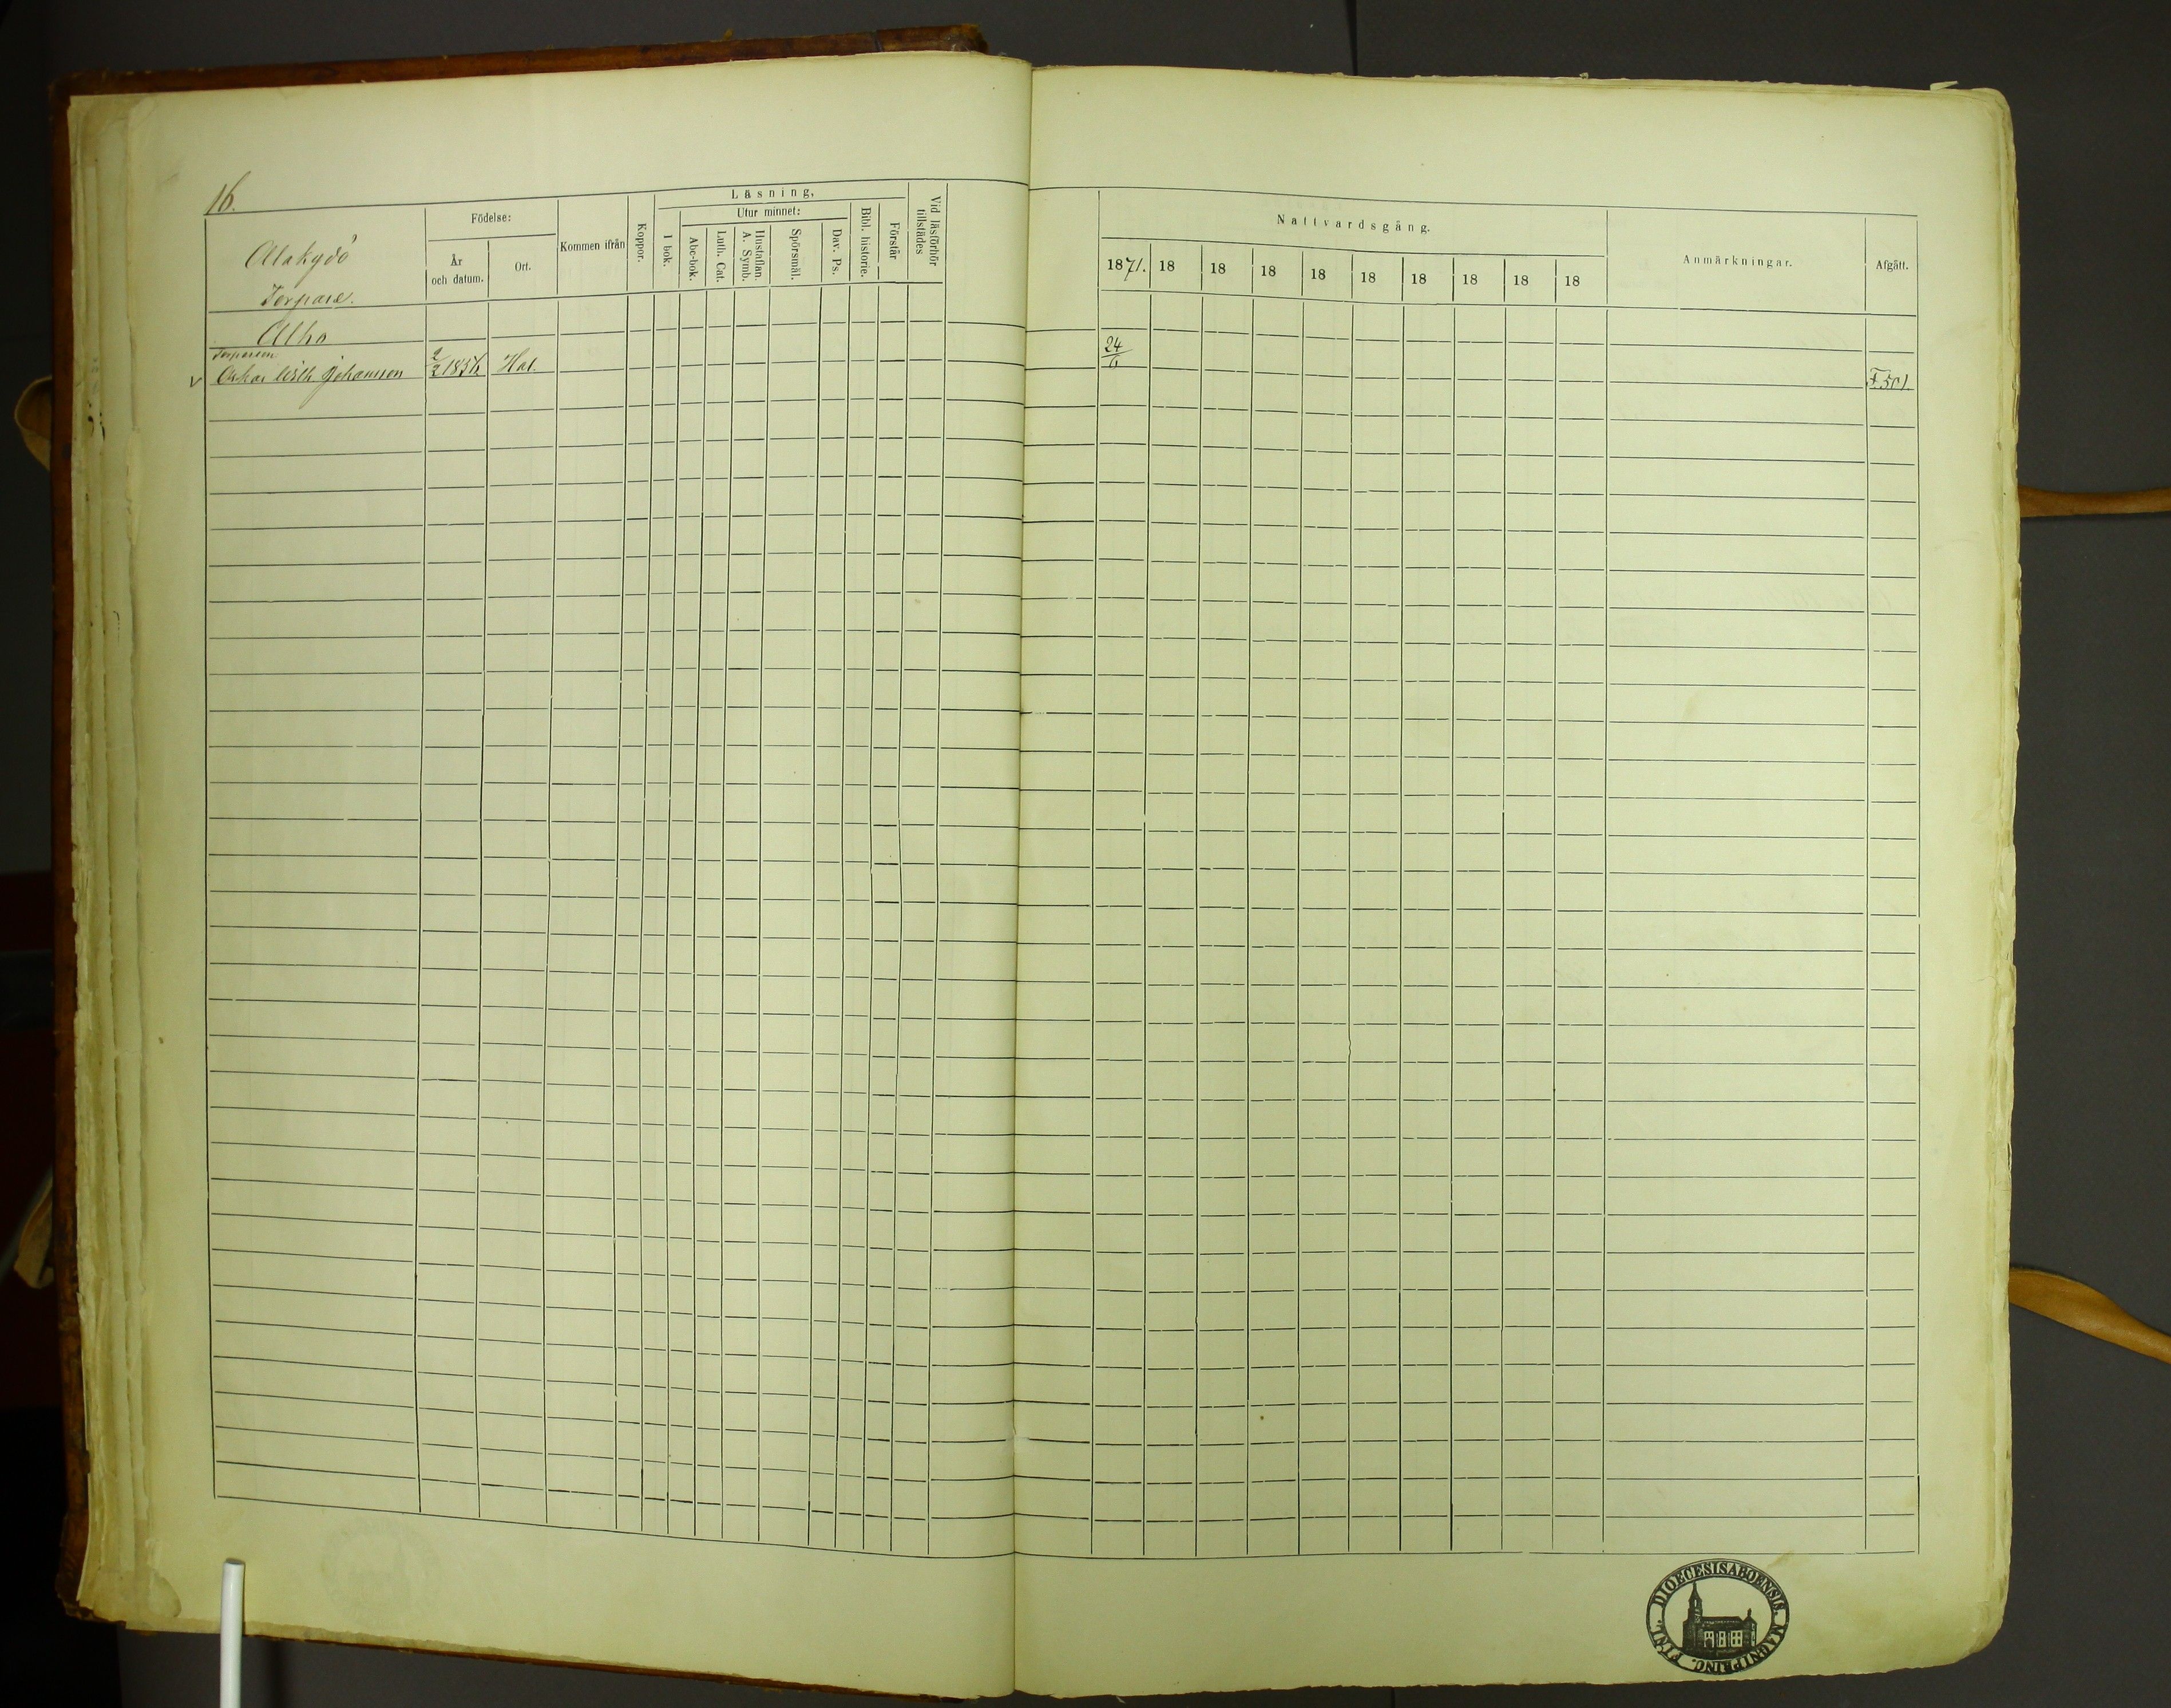 16.
Alakydö
Torpare.
Födelse:
År och datum.
Ort.
Kommen ifrån
Koppor.
Läsning,
I bok.
Utur minnet:
Abc-bok.
Luth. Cat.
Hustaflan. A. Symb.
Spörsmål.
Dav. Ps.
Bibl. historie.
Förstår
Vid läsförhör tillstädes
Nattvardsgång.
1871. 18 18 18 18 18 18 18 18 18
Anmärkningar.
Afgått.
Alho
Torparen
Oskar Wilh Johansson 1836 Hal. 24/6 F. 501.
DIOECESIS ABOENSIS. MAGNI PRINC. FINL.